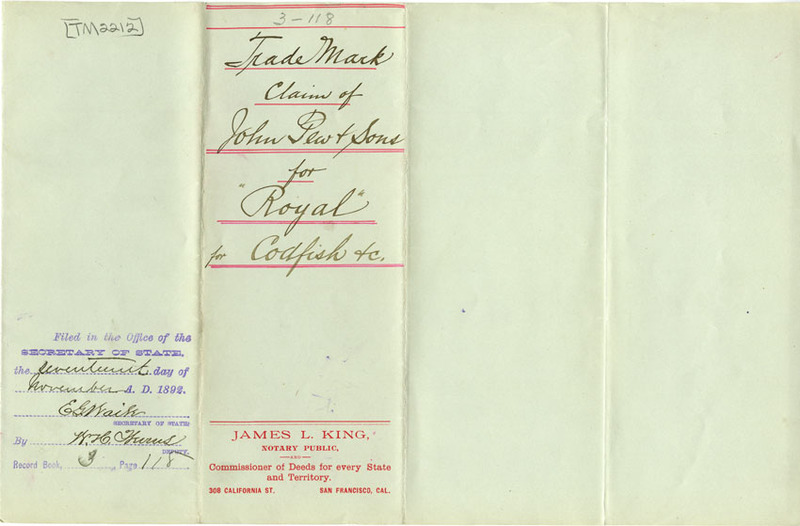 [TM2212]
3-118
Trade Mark
Claim of
John Pew & Sons
for
"Royal"
for Codfish &c.
Filed in the Office of the
SECRETARY OF STATE,
the seventeenth day of
November A. D. 1892.
E G Waite
SECRETARY OF STATE
By
DEPUTY.
Record Book, 3, Page 118
JAMES L. KING,
NOTARY PUBLIC,
—AND—
Commissioner of Deeds for every State
and Territory.
308 CALIFORNIA ST. SAN FRANCISCO, CAL.